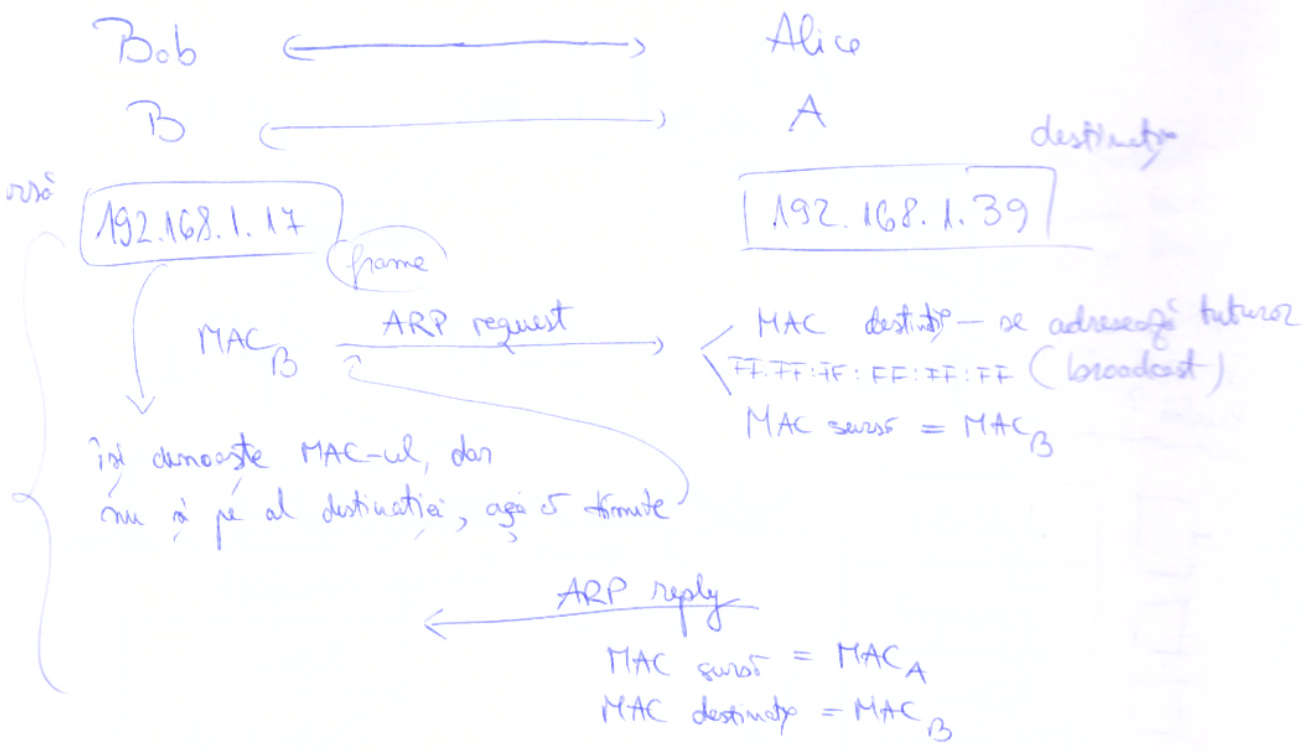 Bob Alice
B A
destinație
192.168.1.17 192.168.1.39
frame
MAC_B ARP request MAC destinație - se adresează tuturor
FF:FF:FF:FF:FF:FF (broadcast)
MAC sursă = MAC_B
își cunoaște MAC-ul, dar
nu și pe al destinației, așa că trimite
ARP reply
MAC sursă = MAC_A
MAC destinație = MAC_B